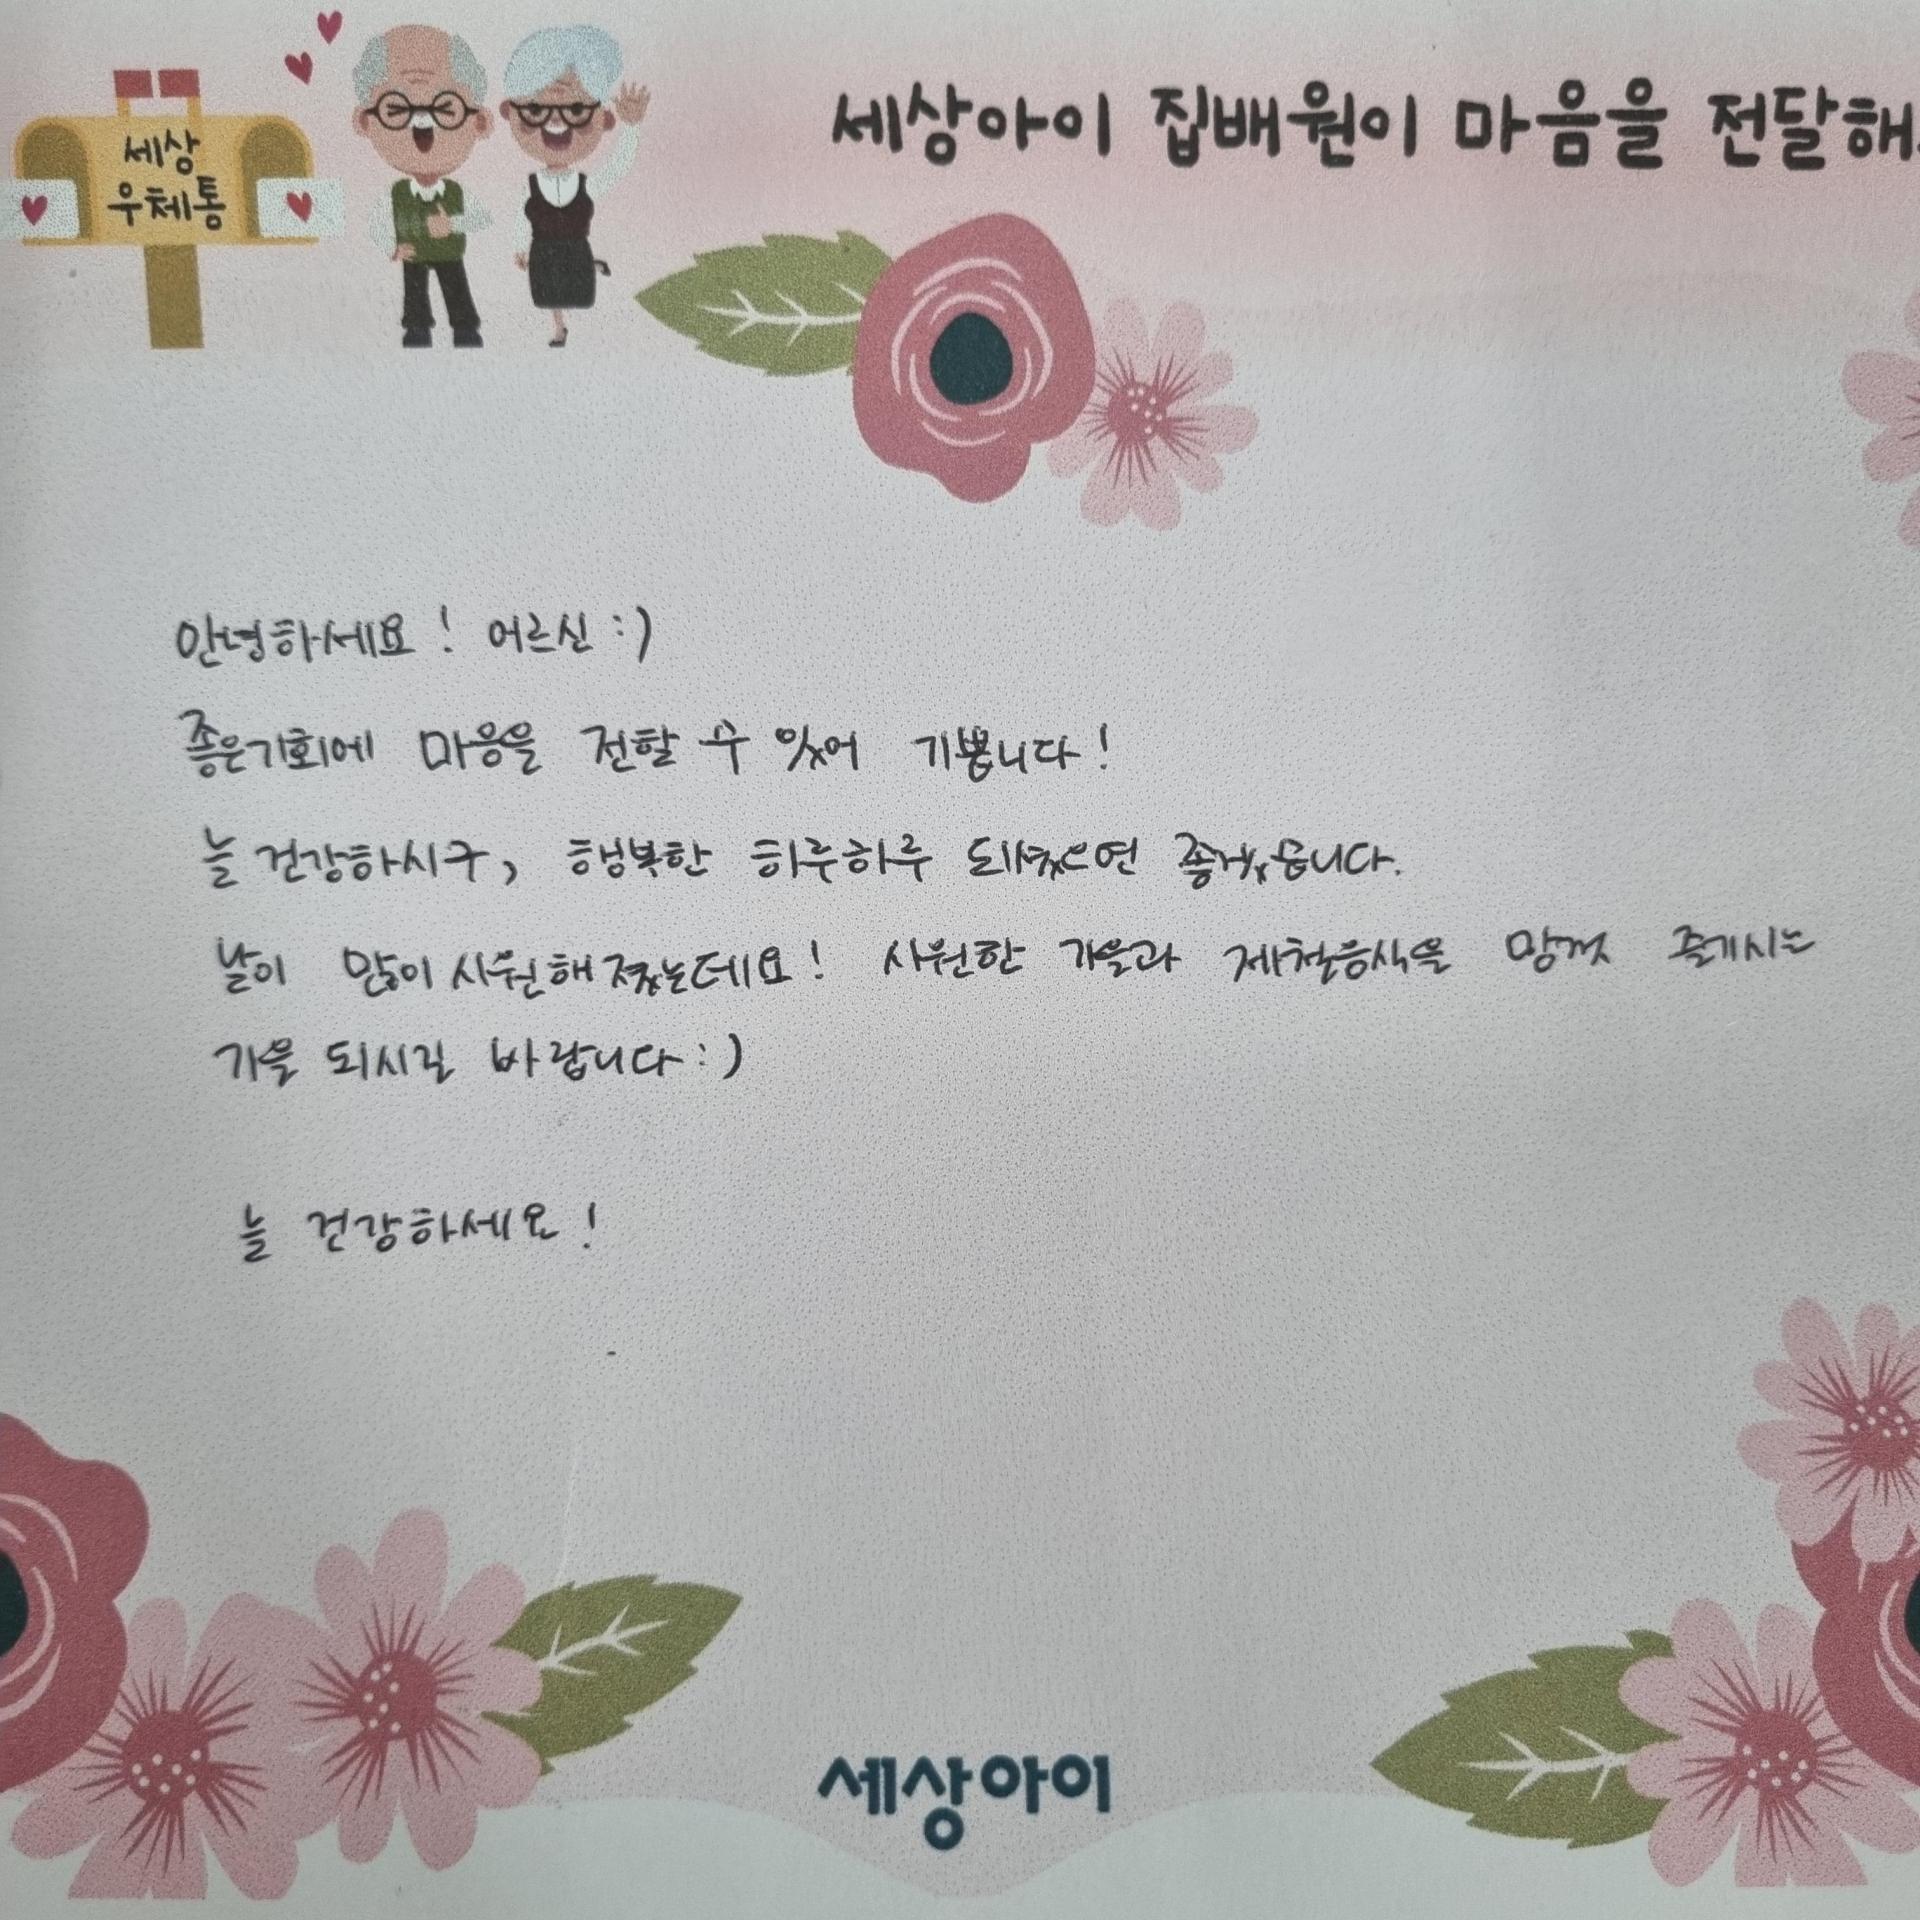 세상아이 집배원이 마음을 전달해
세상
우체통
안녕하세요! 어르신 :)
좋은기회에 마음을 전할 수 있어 기쁩니다!
늘 건강하시구, 행복한 하루하루 되셨으면 좋겠습니다.
날이 많이 시원해졌는데요! 시원한 가을과 제철음식을 맘껏 즐기시는
가을 되시길 바랍니다 :)
늘 건강하세요!
세상아이